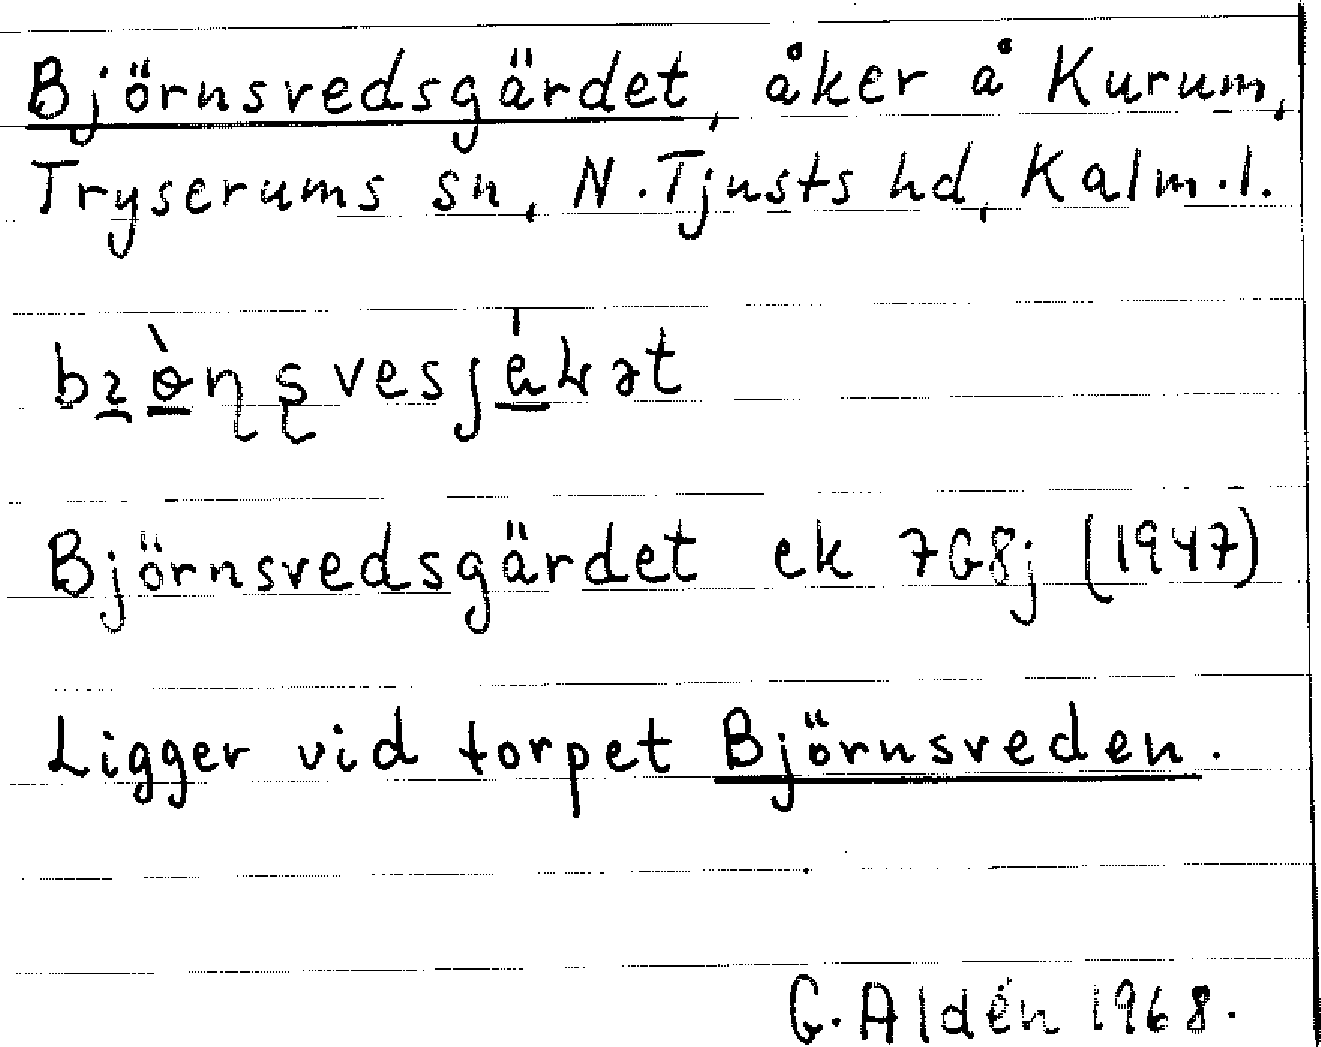 Björnsvedsgärdet, åker å Kurum,
Tryserums sn, N. Tjusts hd, Kalm. l.
Björnsvedsgärdet ek 7G8j (1947)
Ligger vid torpet Björnsveden.
G. Aldén 1968.